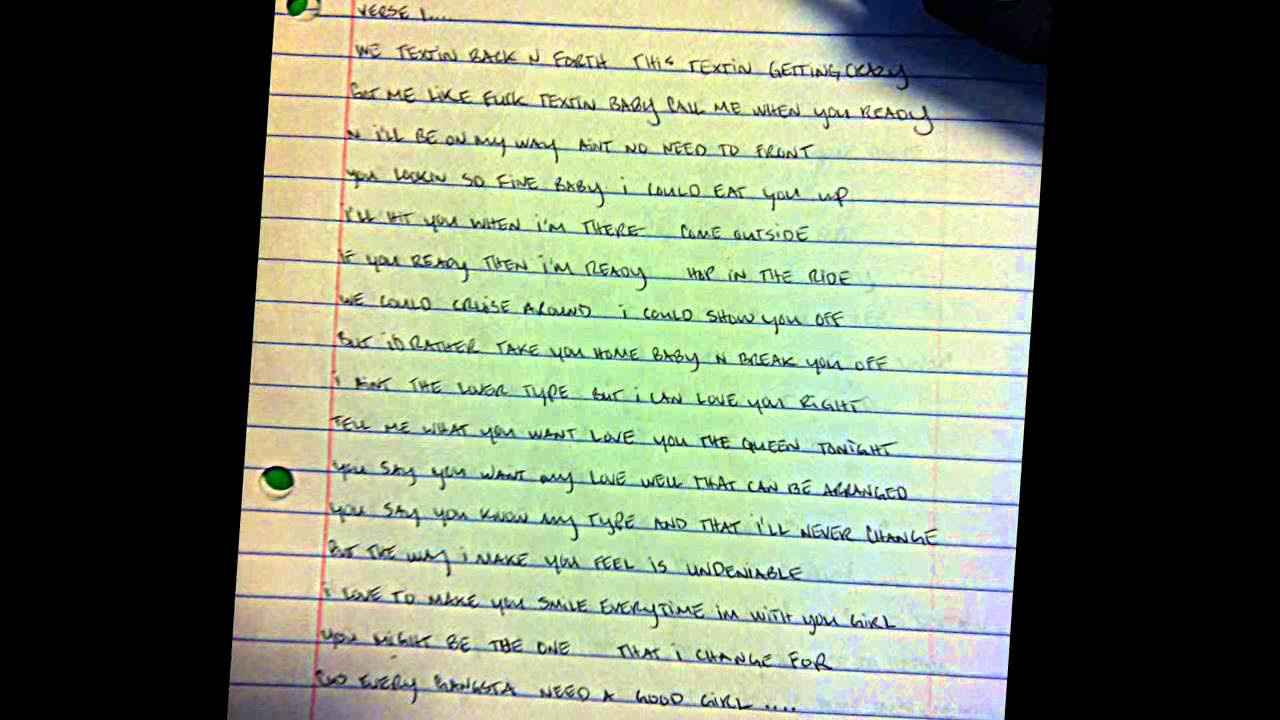 VERSE 1....
WE TEXTIN BACK N FORTH THIS TEXTIN GETTING CRAZY
GOT ME LIKE FUCK TEXTIN BABY CALL ME WHEN YOU READY
N I'LL BE ON MY WAY AINT NO NEED TO FRONT
YOU LOOKIN SO FINE BABY i COULD EAT YOU UP
I'LL HIT YOU WHEN i'M THERE COME OUTSIDE
IF YOU READY THEN i'M READY HOP IN THE RIDE
WE COULD CRUISE AROUND i COULD SHOW YOU OFF
BUT i'D RATHER TAKE YOU HOME BABY N BREAK YOU OFF
i AINT THE LOVER TYPE BUT i CAN LOVE YOU RIGHT
TELL ME WHAT YOU WANT LOVE YOU THE QUEEN TONIGHT
YOU SAY YOU WANT MY LOVE WELL THAT CAN BE ARRANGED
YOU SAY YOU KNOW MY TYPE AND THAT i'LL NEVER CHANGE
BUT THE WAY i MAKE YOU FEEL IS UNDENIABLE
i LOVE TO MAKE YOU SMILE EVERYTIME IM WITH YOU GIRL
YOU MIGHT BE THE ONE THAT i CHANGE FOR
EVERY GANGSTA NEED A GOOD GIRL ....